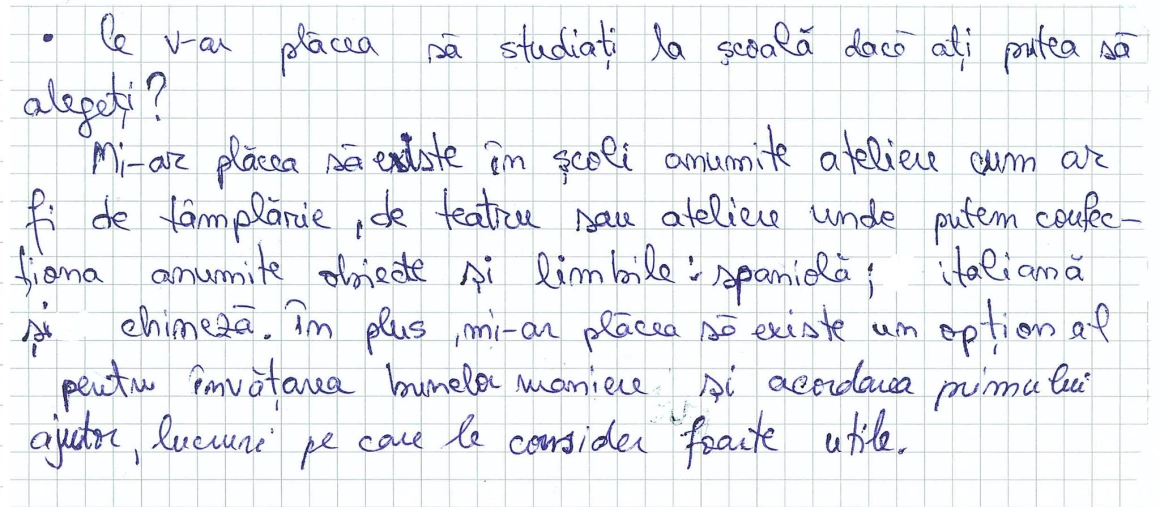 • Ce v-ar plăcea să studiați la școală dacă ați putea să
alegeți?
Mi-ar plăcea să existe în școli anumite ateliere cum ar
fi de tâmplărie, de teatru sau ateliere unde putem confec-
ționa anumite obiecte și limbile: spaniolă; italiană
și chineză. În plus, mi-ar plăcea să existe un opțional
pentru învățarea bunelor maniere și acordarea primului
ajutor, lucruri pe care le consider foarte utile.